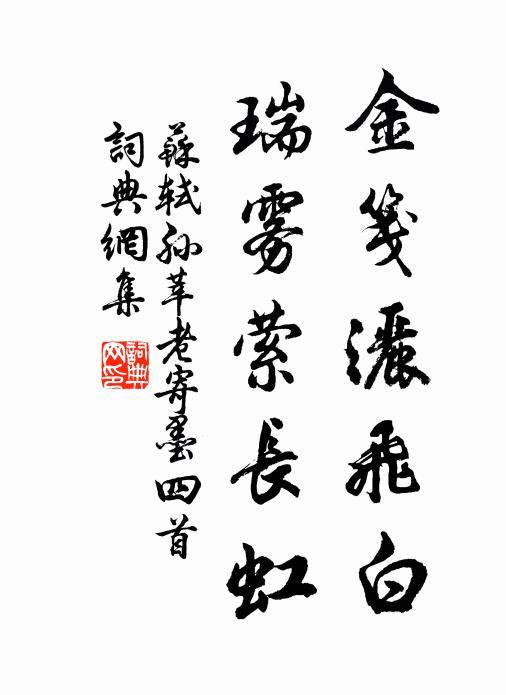 金箋灑飛白
瑞雾縈長虹
蘇軾孙莘老寄墨四首
詞典網集
詞典网印